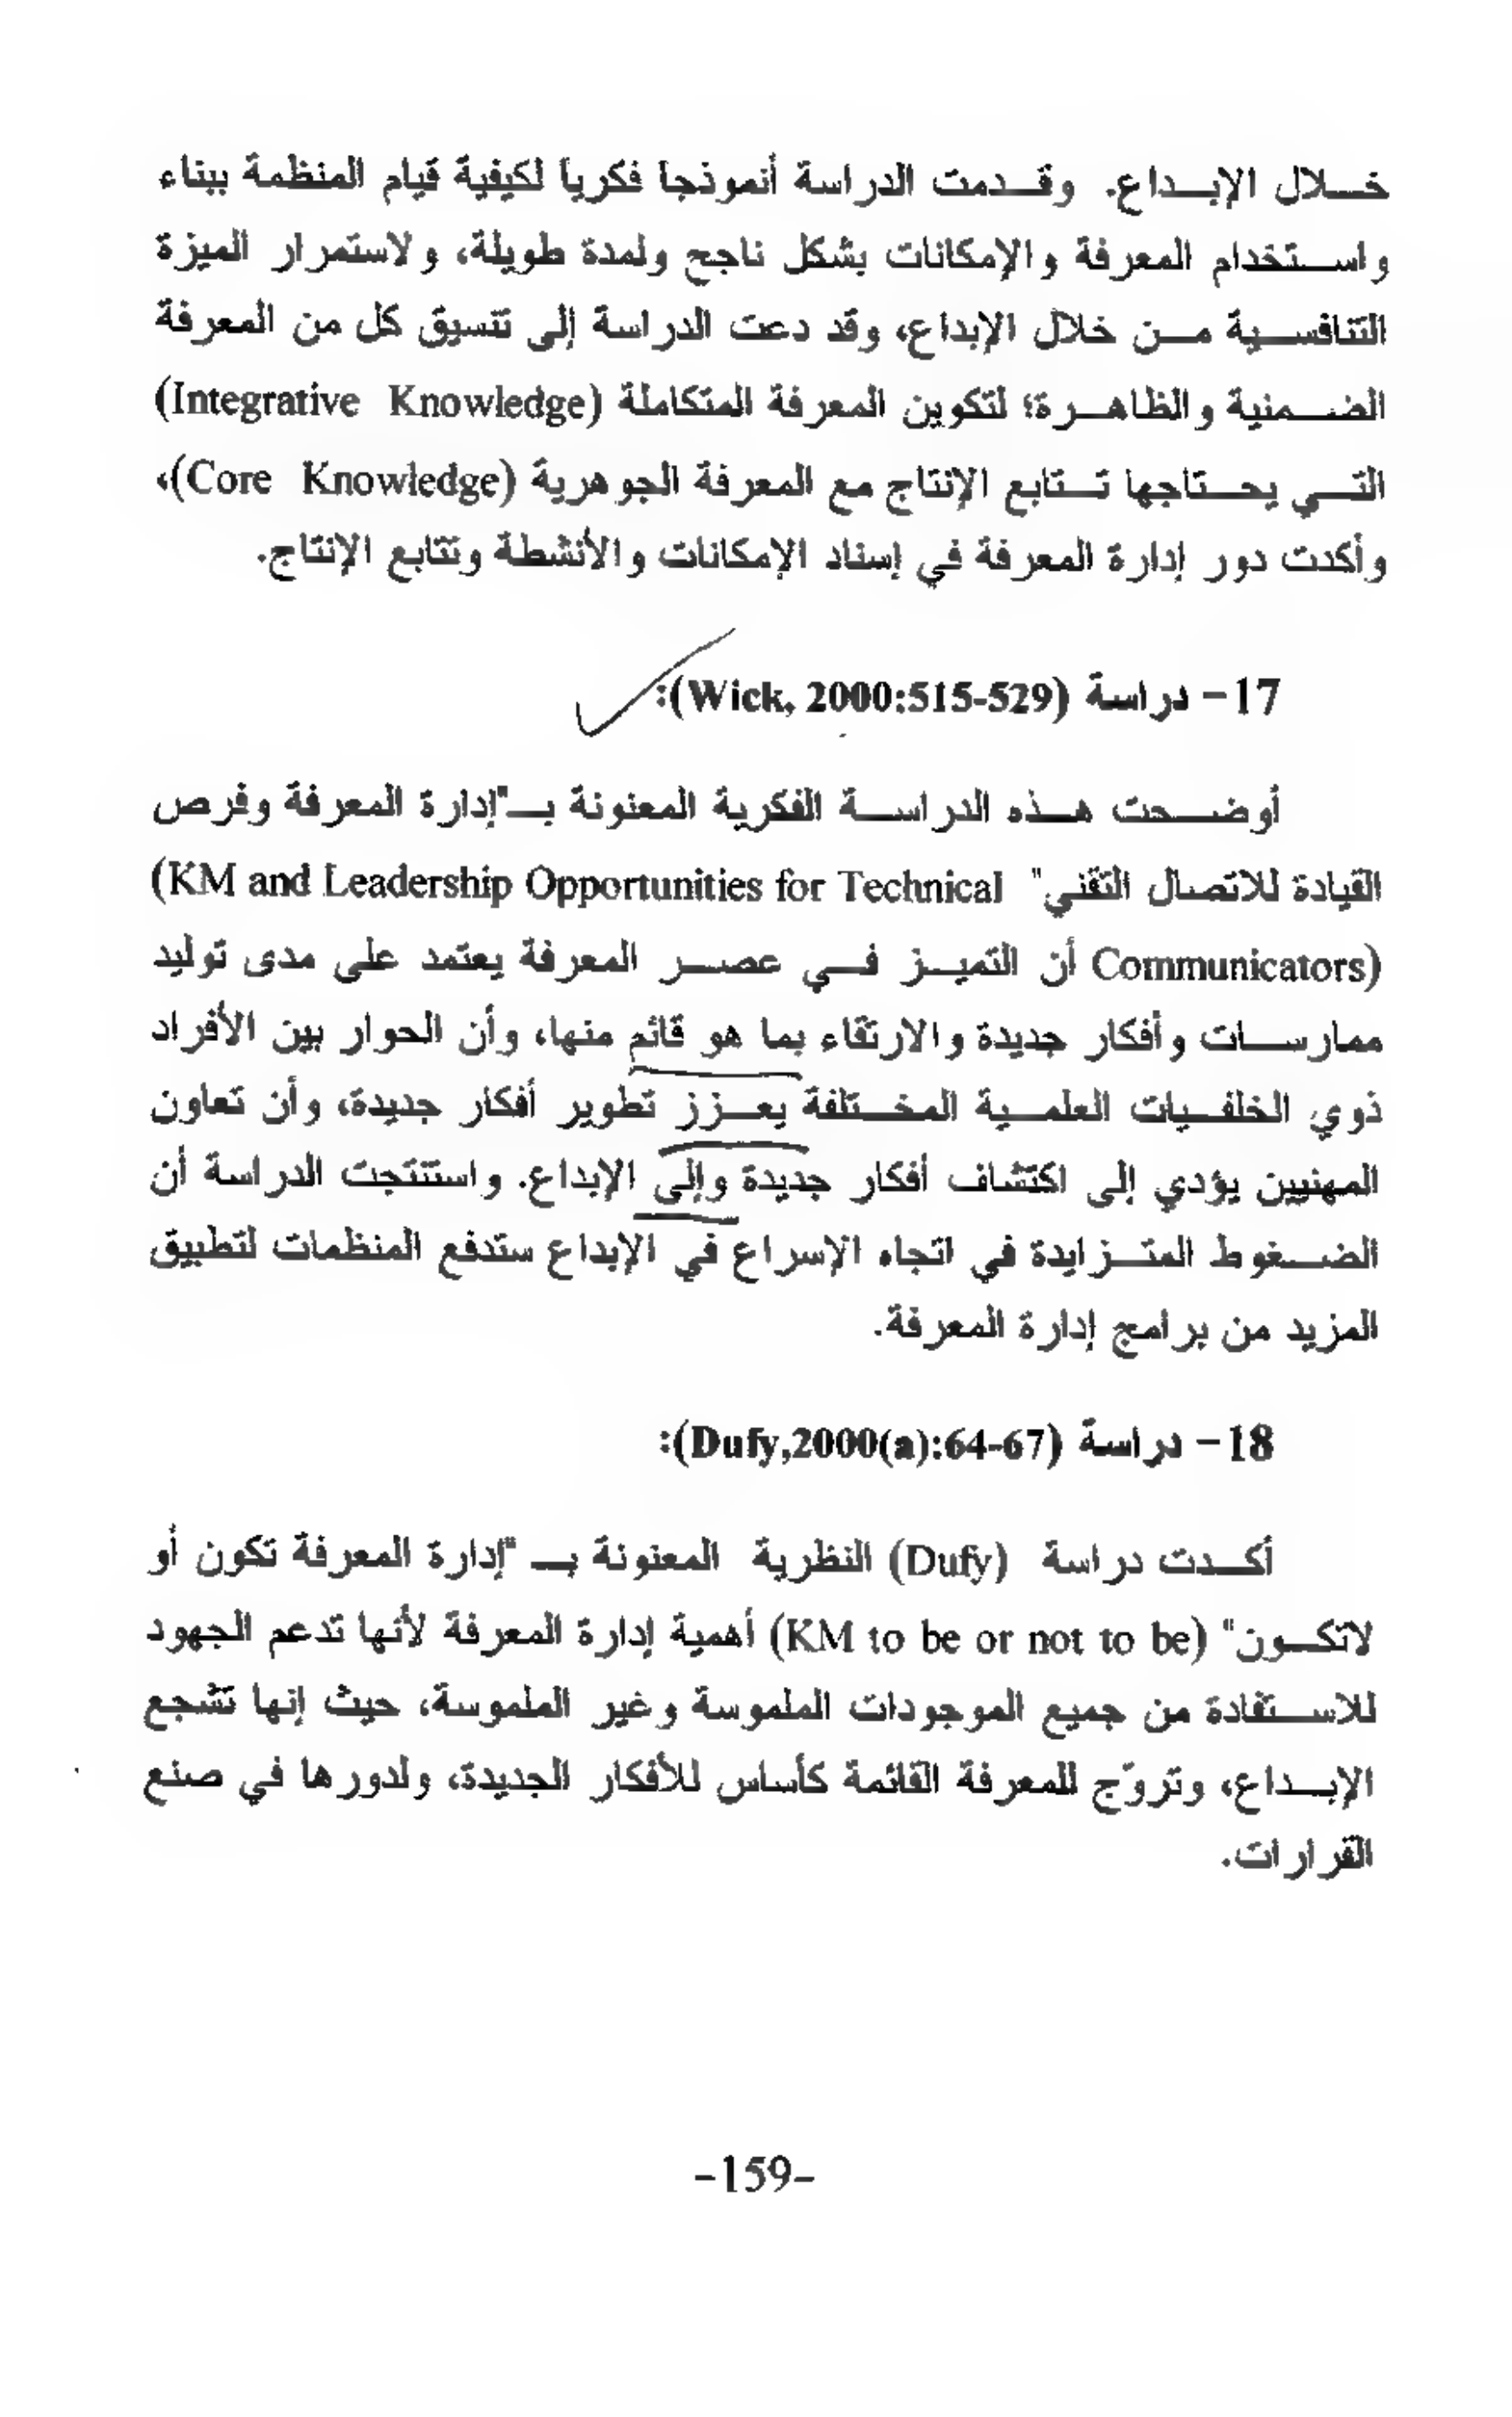 خلال الإبداع. وقدمت الدراسة أنموذجا فكريا لكيفية قيام المنظمة ببناء
واستخدام المعرفة والإمكانات بشكل ناجح ولمدة طويلة، ولاستمرار الميزة
التنافسية من خلال الإبداع، وقد دعت الدراسة إلى تنسيق كل من المعرفة
الضمنية والظاهرة؛ لتكوين المعرفة المتكاملة (Integrative Knowledge)
التي يحتاجها تتابع الإنتاج مع المعرفة الجوهرية (Core Knowledge)،
وأكدت دور إدارة المعرفة في إسناد الإمكانات والأنشطة وتتابع الإنتاج.
17- دراسة (Wick, 2000:515-529):
أوضحت هذه الدراسة الفكرية المعنونة بـ"إدارة المعرفة وفرص
القيادة للاتصال التقني" (KM and Leadership Opportunities for Technical
Communicators) أن التميز في عصر المعرفة يعتمد على مدى توليد
ممارسات وأفكار جديدة والارتقاء بما هو قائم منها، وأن الحوار بين الأفراد
ذوي الخلفيات العلمية المختلفة يعزز تطوير أفكار جديدة، وأن تعاون
المهنيين يؤدي إلى اكتشاف أفكار جديدة وإلى الإبداع. واستنتجت الدراسة أن
الضغوط المتزايدة في اتجاه الإسراع في الإبداع ستدفع المنظمات لتطبيق
المزيد من برامج إدارة المعرفة.
18- دراسة (Dufy,2000(a):64-67):
أكدت دراسة (Dufy) النظرية المعنونة بـ "إدارة المعرفة تكون أو
لاتكون" (KM to be or not to be) أهمية إدارة المعرفة لأنها تدعم الجهود
للاستفادة من جميع الموجودات الملموسة وغير الملموسة، حيث إنها تشجع
الإبداع، وتروّج للمعرفة القائمة كأساس للأفكار الجديدة، ولدورها في صنع
القرارات.
-159-